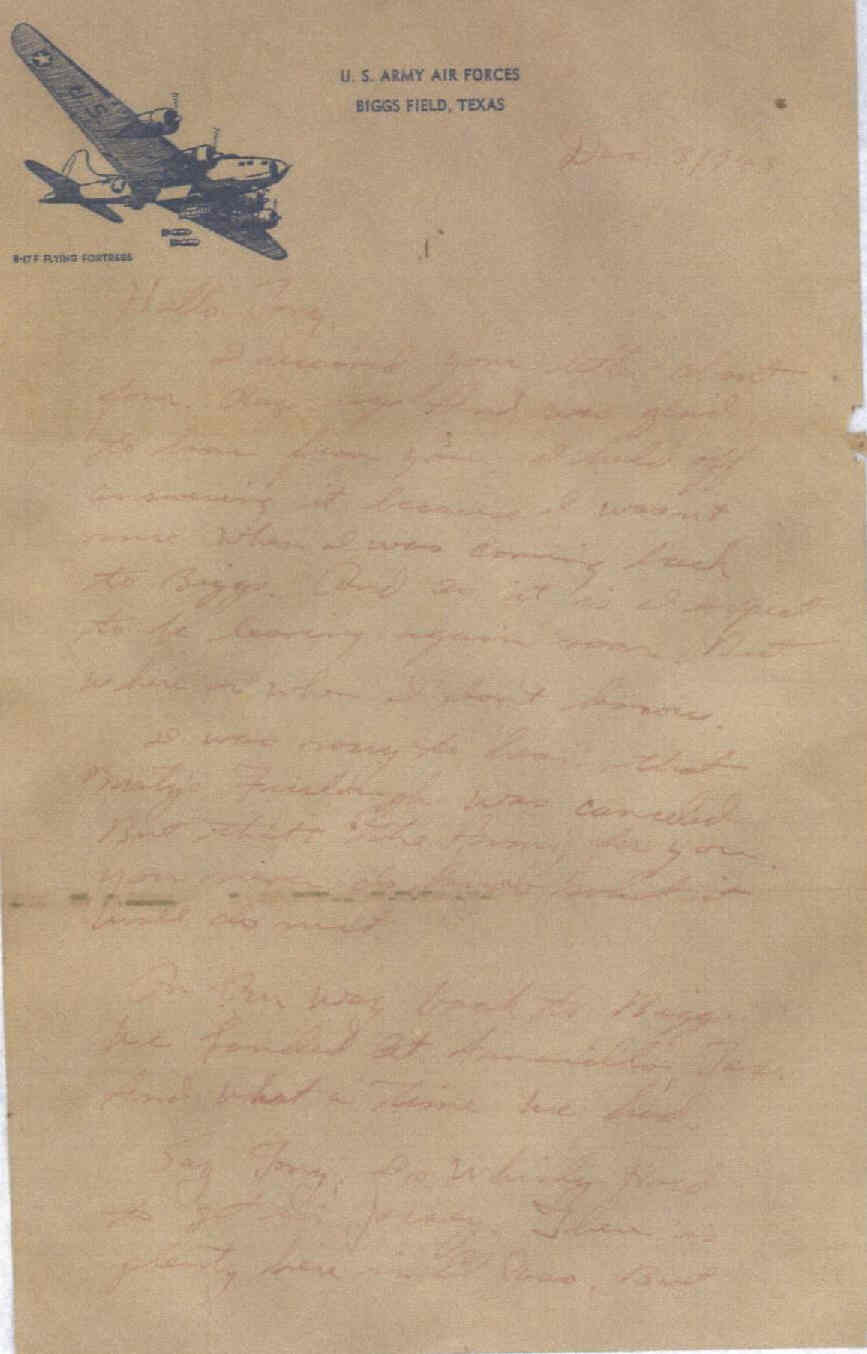 U. S. ARMY AIR FORCES
BIGGS FIELD, TEXAS
U S
B-17F FLYING FORTRESS
Hello Tony,
I received your letter about
four days ago And was glad
to hear from you. I held off
answering it because I wasn't
sure when I was coming back
to Biggs. And so it is I expect
to be leaving again soon, but
where or when I don't know.
I was sorry to hear that
Furlough was canceled
But that's the Army for you.
you never know what it
will do next
On our way back to Biggs
We landed at Amarillo, Tex.
And what a time we had.
Say Tony, Is Whisky Hard
to get in Jersey. There is
plenty here in El Paso. But